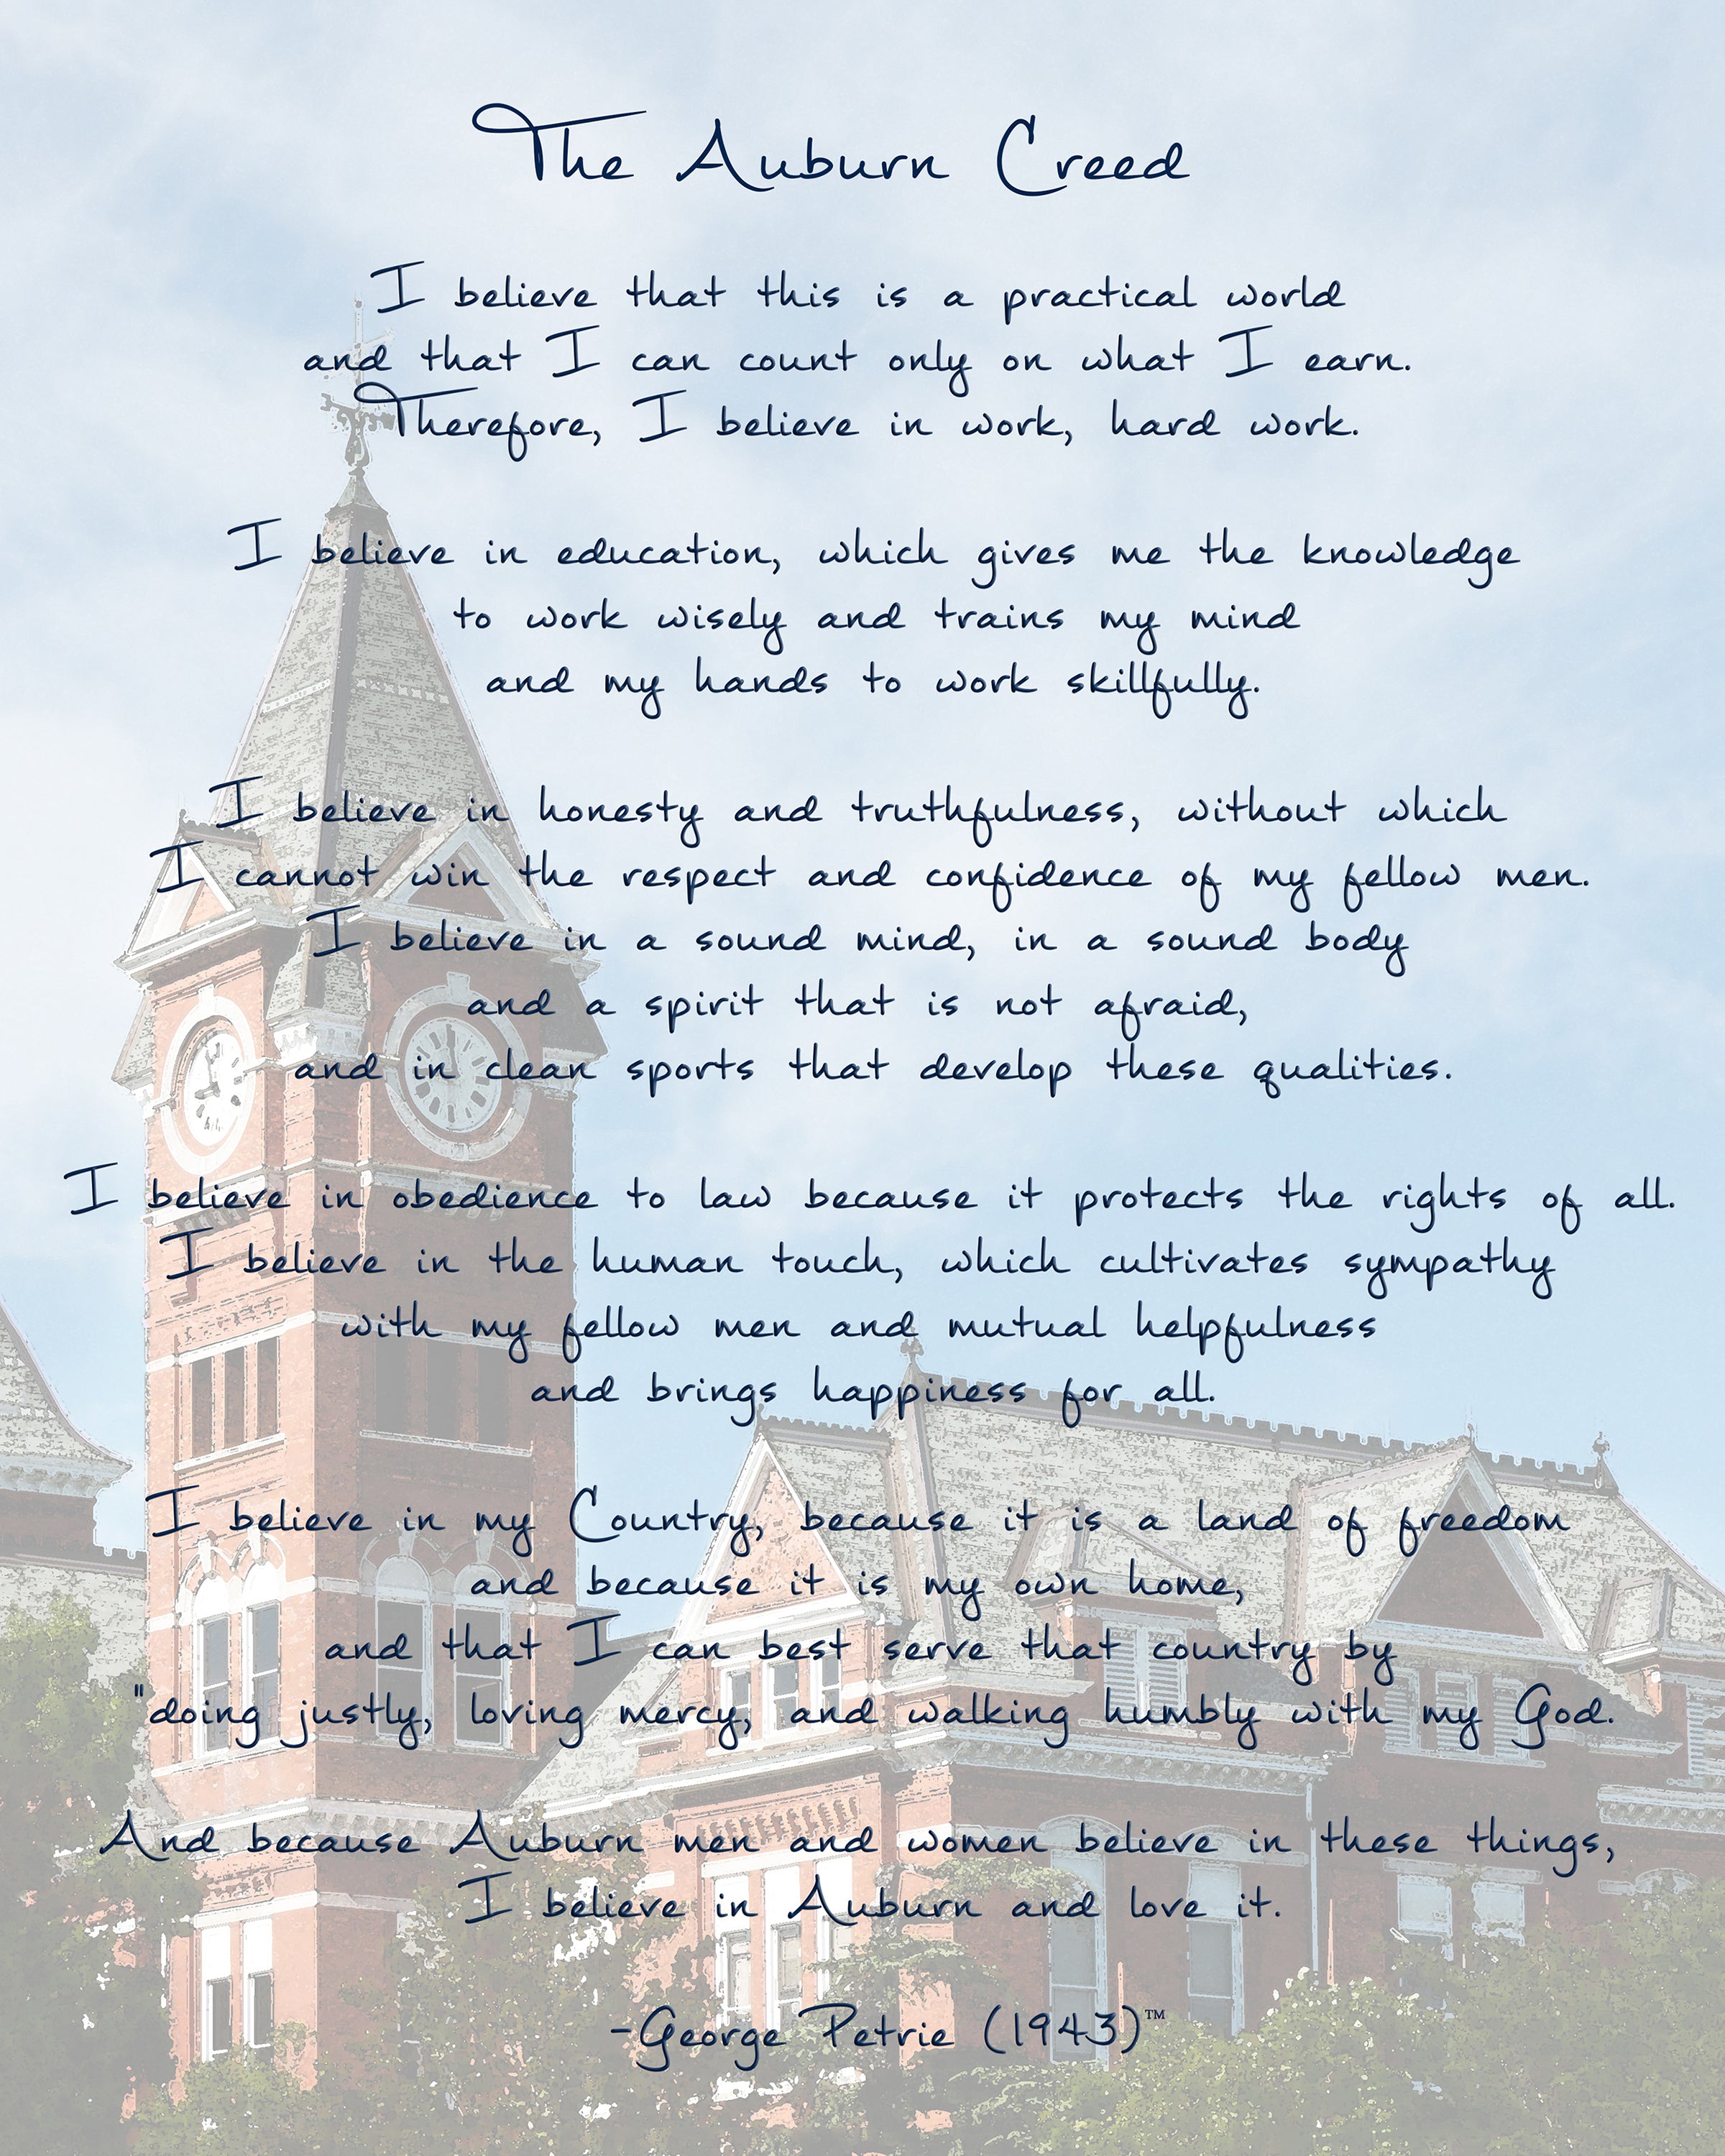 The Auburn Creed
I believe that this is a practical world
and that I can count only on what I earn.
Therefore, I believe in work, hard work.
I believe in education, which gives me the knowledge
to work wisely and trains my mind
and my hands to work skillfully.
I believe in honesty and truthfulness, without which
I cannot win the respect and confidence of my fellow men.
I believe in a sound mind, in a sound body
and a spirit that is not afraid,
and in clean sports that develop these qualities.
I believe in obedience to law because it protects the rights of all.
I believe in the human touch, which cultivates sympathy
with my fellow men and mutual helpfulness
and brings happiness for all.
I believe in my Country, because it is a land of freedom
and because it is my own home,
and that I can best serve that country by
"doing justly, loving mercy, and walking humbly with my God.
And because Auburn men and women believe in these things,
I believe in Auburn and love it.
-George Petrie (1943)™